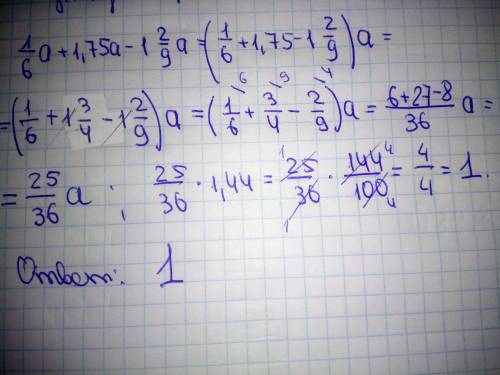 1/6 a + 1,75a - 1 2/9 a = (1/6 + 1,75 - 1 2/9) a =
= (1/6 + 1 3/4 - 1 2/9) a = (1/6 ⁶ + 3/4 ⁹ - 2/9 ⁴) a = (6+27-8)/36 a =
= 25/36 a ; 25/36 · 1,44 = 25/36 · 144/100 = 4/4 = 1.
Ответ: 1